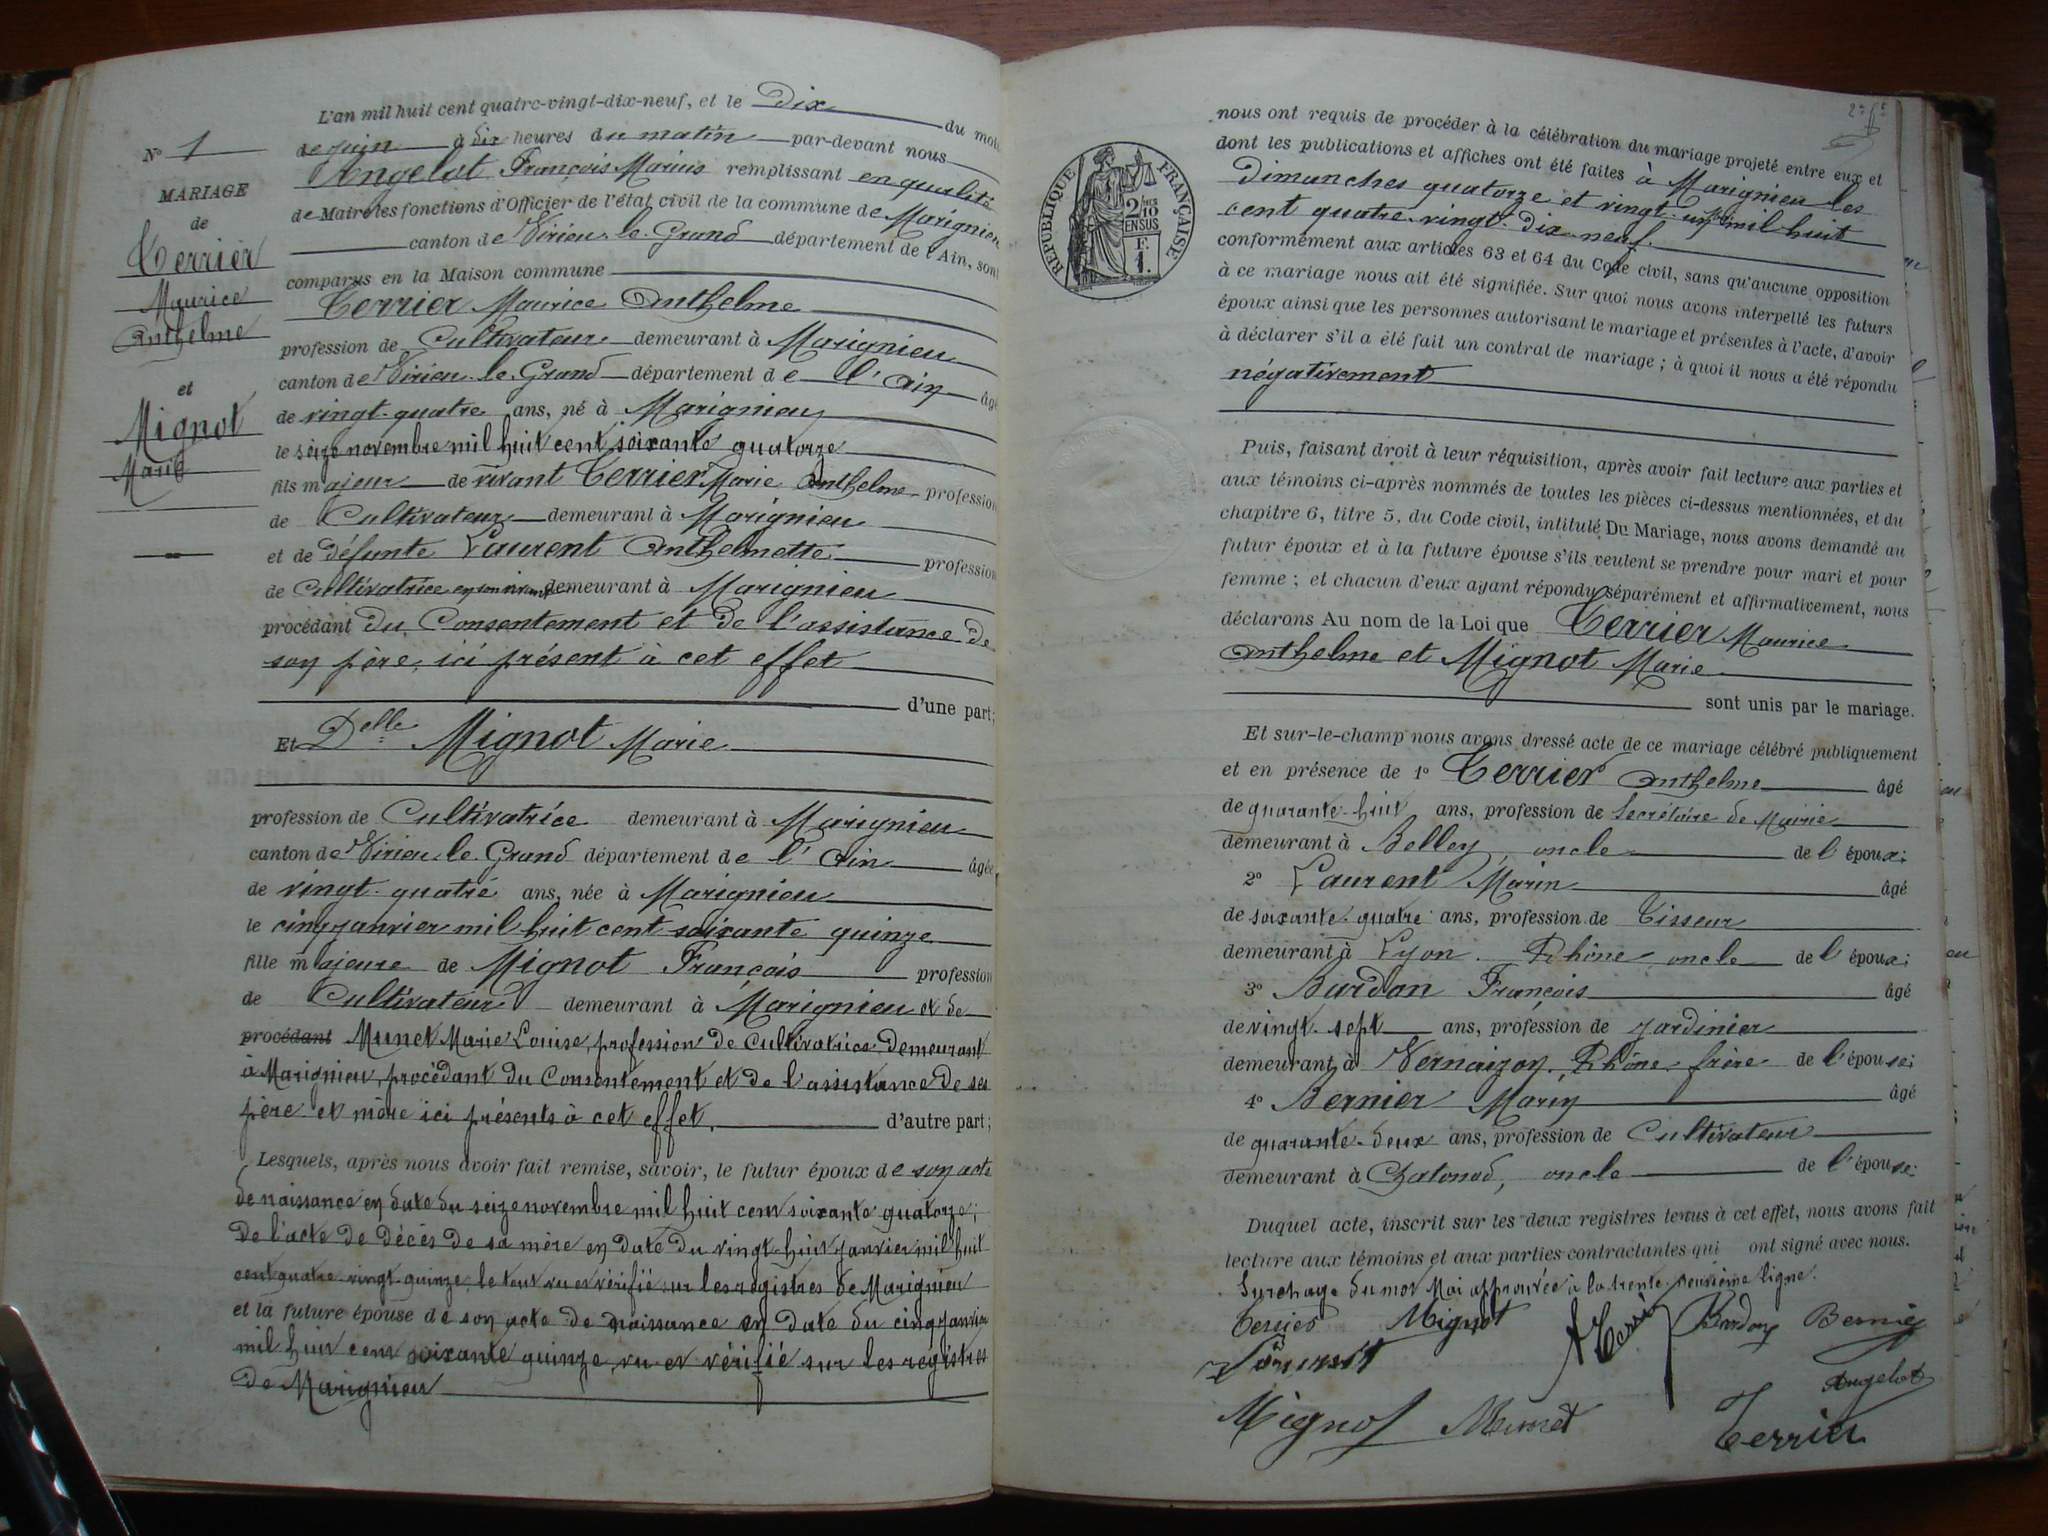 L'an mil huit cent quatre-vingt-dix-neuf, et le Dix du mois
de juin à dix heures du matin par-devant nous
Angelot François Marius remplissant en qualité
de Maire les fonctions d'Officier de l'état civil de la commune de Marignieu
canton de Virieu-le-Grand département de l'Ain, sont
comparus en la Maison commune
Terrier Maurice Anthelme
profession de Cultivateur demeurant à Marignieu
canton de Virieu-le-Grand département de l'Ain âgé
de vingt-quatre ans, né à Marignieu
le seize novembre mil huit cent soixante quatorze
fils majeur de vivant Terrier Marie Anthelme profession
de Cultivateur demeurant à Marignieu
et de défunte Laurent Anthelmette profession
de Cultivatrice en son vivant demeurant à Marignieu
procédant du Consentement et de l'assistance de
son père, ici présent à cet effet
d'une part;
Et Delle Mignot Marie
profession de Cultivatrice demeurant à Marignieu
canton de Virieu-le-Grand département de l'Ain âgée
de vingt-quatre ans, née à Marignieu
le cinq janvier mil huit cent soixante quinze
fille majeure de Mignot François profession
de Cultivateur demeurant à Marignieu et de
procédant Munet Marie Louise, profession de Cultivatrice demeurant
à Marignieu, procédant du Consentement et de l'assistance de ses
père et mère ici présents à cet effet. d'autre part;
Lesquels, après nous avoir fait remise, savoir, le futur époux de son acte
de naissance en date du seize novembre mil huit cent soixante quatorze;
de l'acte de décès de sa mère en date du vingt-huit janvier mil huit
cent quatre-vingt-quinze, le tout vu et vérifié sur les registres de Marignieu
et la future épouse de son acte de naissance en date du cinq janvier
mil huit cent soixante quinze, vu et vérifié sur les registres
de Marignieu
N° 1
MARIAGE
de
Terrier
Maurice
Anthelme
et
Mignot
Marie
RÉPUBLIQUE FRANÇAISE
2/10 EN SUS
F.
1.
nous ont requis de procéder à la célébration du mariage projeté entre eux et
dont les publications et affiches ont été faites à Marignieu les
Dimanches quatorze et vingt-un mai mil huit
cent quatre-vingt-dix-neuf.
conformément aux articles 63 et 64 du Code civil, sans qu'aucune opposition
à ce mariage nous ait été signifiée. Sur quoi nous avons interpellé les futurs
époux ainsi que les personnes autorisant le mariage et présentes à l'acte, d'avoir
à déclarer s'il a été fait un contrat de mariage; à quoi il nous a été répondu
négativement
Puis, faisant droit à leur réquisition, après avoir fait lecture aux parties et
aux témoins ci-après nommés de toutes les pièces ci-dessus mentionnées, et du
chapitre 6, titre 5, du Code civil, intitulé Du Mariage, nous avons demandé au
futur époux et à la future épouse s'ils veulent se prendre pour mari et pour
femme; et chacun d'eux ayant répondu séparément et affirmativement, nous
déclarons Au nom de la Loi que Terrier Maurice
Anthelme et Mignot Marie
sont unis par le mariage.
Et sur-le-champ nous avons dressé acte de ce mariage célébré publiquement
et en présence de 1° Terrier Anthelme âgé
de quarante-huit ans, profession de Secrétaire de Mairie
demeurant à Belley, oncle de l'époux;
2° Laurent Marin âgé
de soixante-quatre ans, profession de Tisseur
demeurant à Lyon, Rhône, oncle de l'époux;
3° Burdon François âgé
de vingt-sept ans, profession de Jardinier
demeurant à Vernaizon, Rhône, frère de l'épouse;
4° Bernier Marin âgé
de quarante-deux ans, profession de Cultivateur
demeurant à Chatonod, oncle de l'épouse;
Duquel acte, inscrit sur les deux registres tenus à cet effet, nous avons fait
lecture aux témoins et aux parties contractantes qui ont signé avec nous.
Surcharge du mot Mai approuvée à la trente-neuvième ligne.
Terrier Mignot A Terrier Burdon Bernier
Laurent Angelot
Mignot Munet Terrier